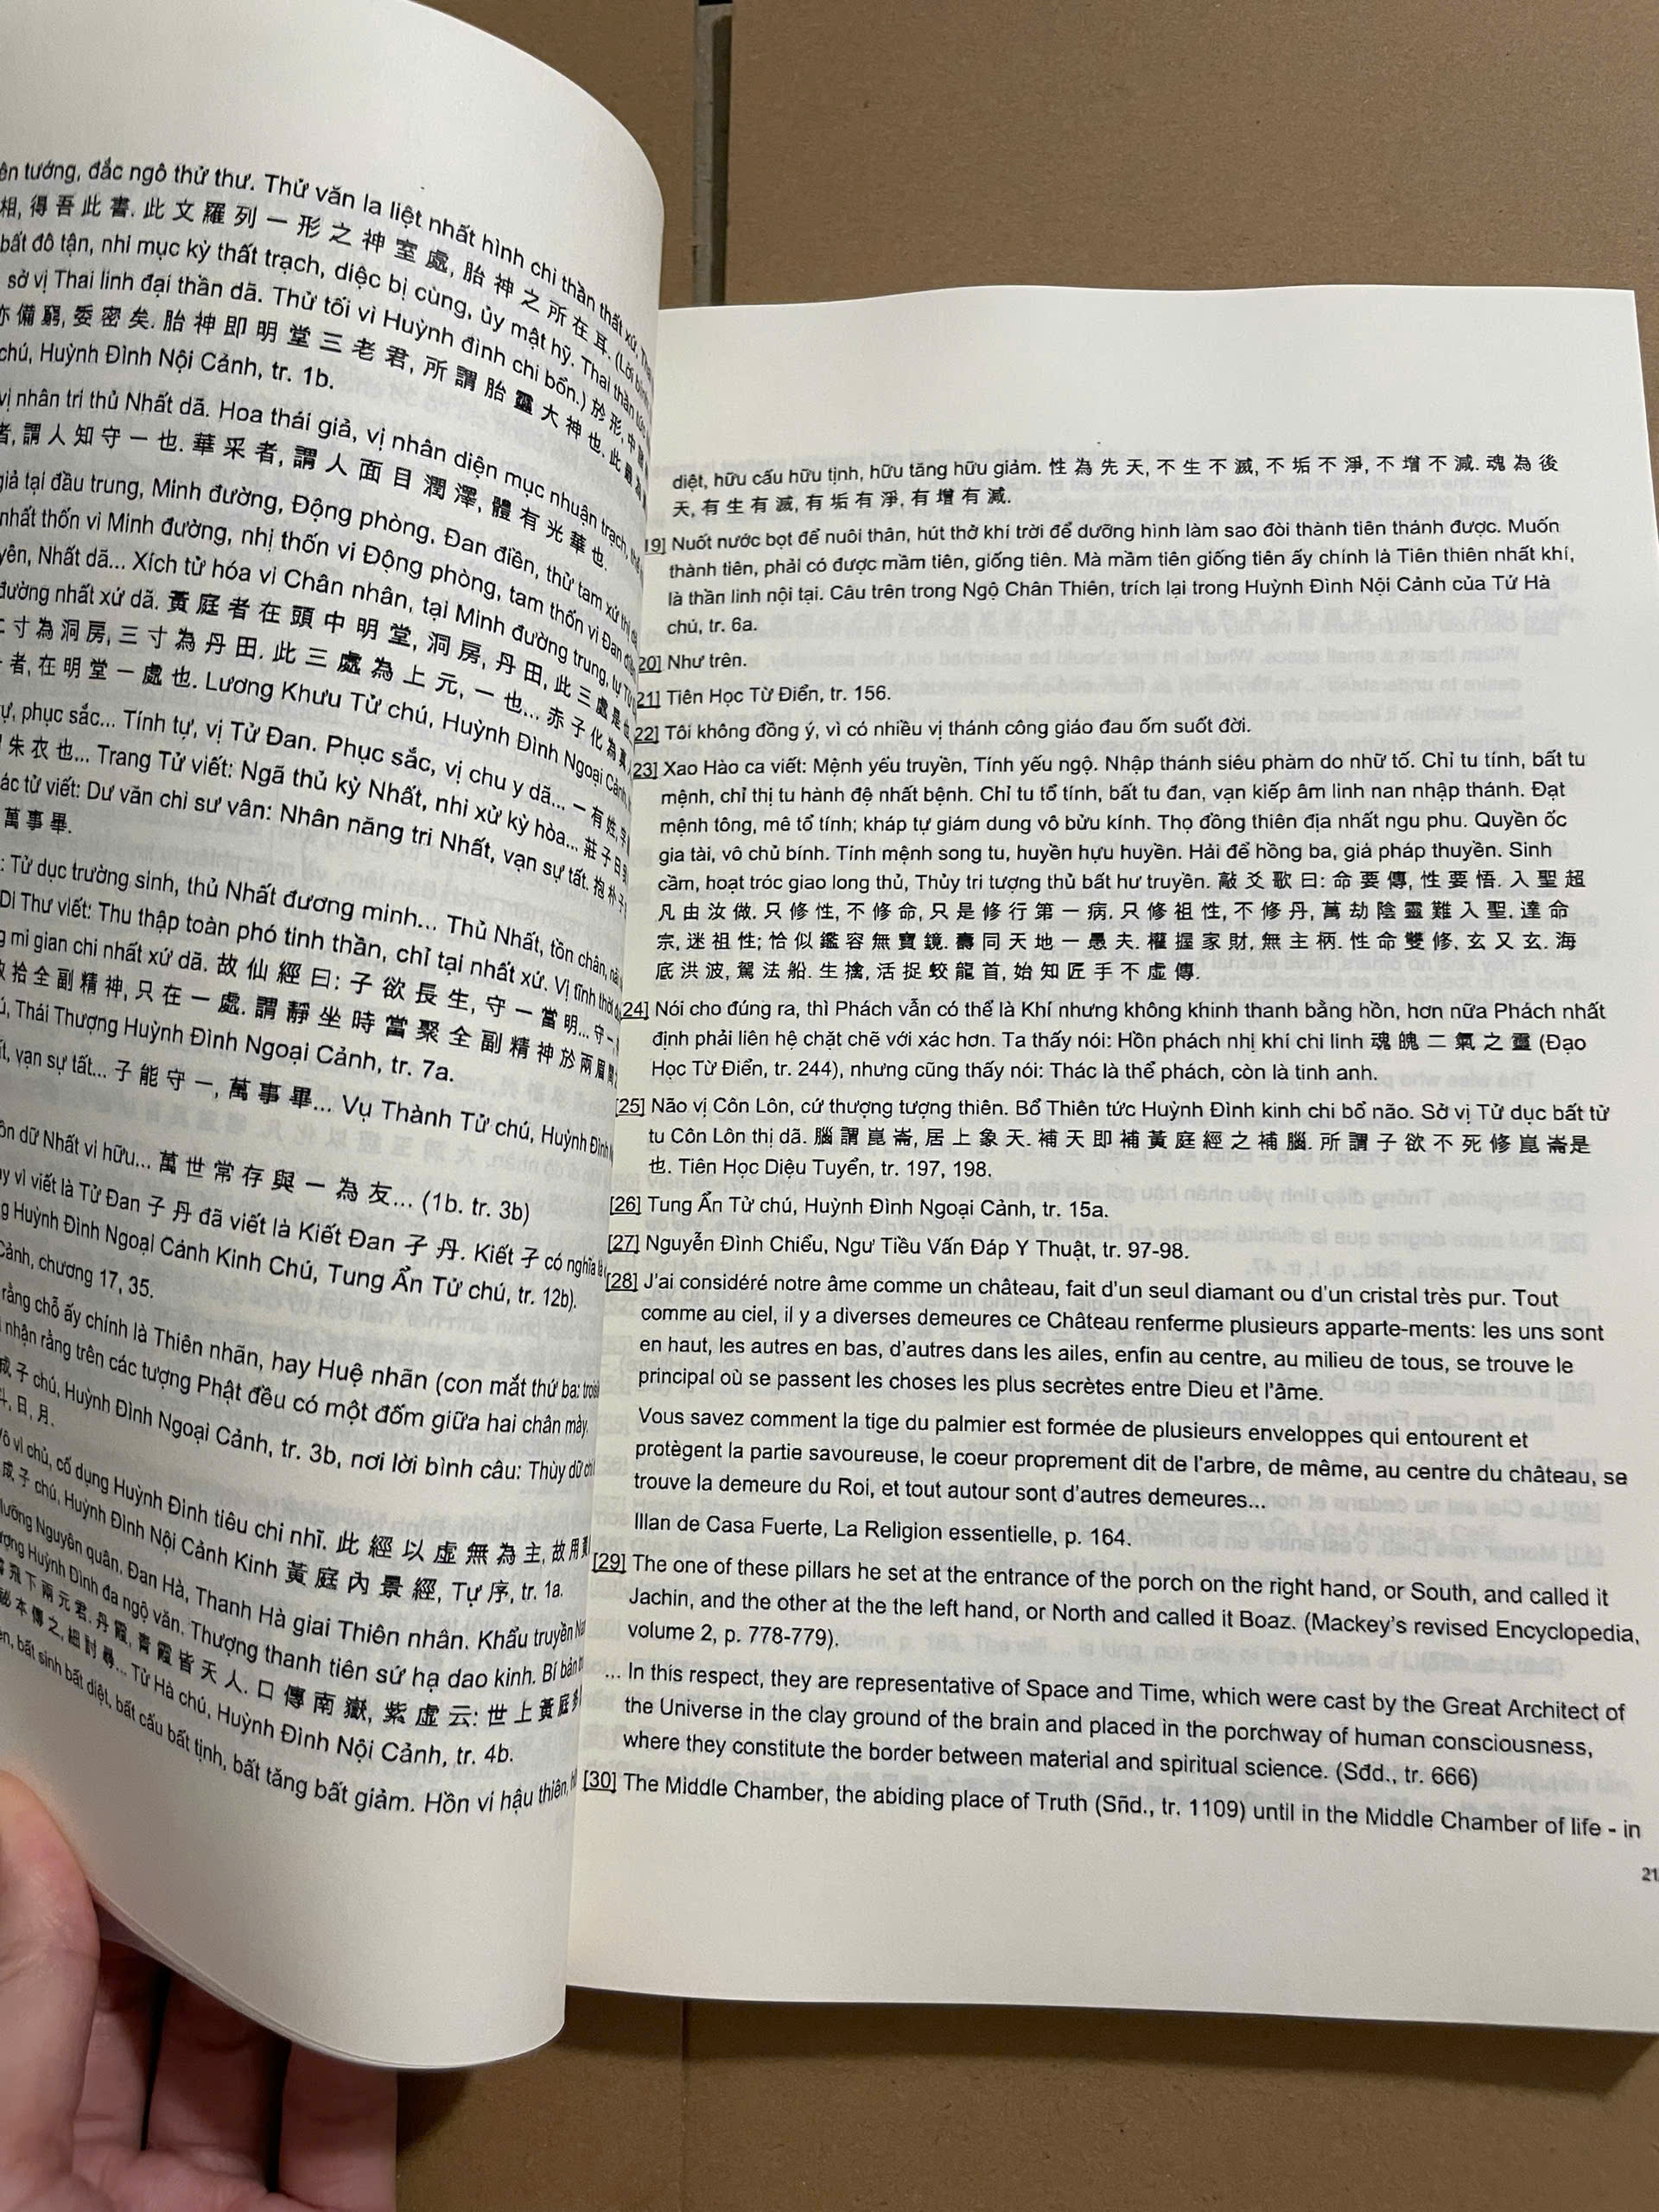 ên tướng, đắc ngô thử thư. Thử văn la liệt nhất hình chi thần thất xứ,
相, 得 吾 此 書. 此 文 羅 列 一 形 之 神 室 處, 胎 神 之 所 在 耳. (Lời bình
bất đô tận, nhi mục kỳ thất trạch, diệc bị cùng, ủy mật hỹ. Thai thần tức
sở vị Thai linh đại thần dã. Thử tối vi Huỳnh đình chi bổn.) 於 形, 中
亦 備 窮, 委 密 矣. 胎 神 即 明 堂 三 老 君, 所 謂 胎 靈 大 神 也. 此
chú, Huỳnh Đình Nội Cảnh, tr. 1b.
vị nhân tri thủ Nhất dã. Hoa thái giả, vị nhân diện mục nhuận trạch,
者, 謂 人 知 守 一 也. 華 采 者, 謂 人 面 目 潤 澤, 體 有 光 華 也.
giả tại đầu trung, Minh đường, Động phòng, Đan điền, thử tam xứ thị
nhất thốn vi Minh đường, nhị thốn vi Động phòng, tam thốn vi Đan điền
yên, Nhất dã... Xích tử hóa vi Chân nhân, tại Minh đường trung, tự
đường nhất xứ dã. 黃 庭 者 在 頭 中 明 堂, 洞 房, 丹 田, 此 三 處 是 也
二 寸 為 洞 房, 三 寸 為 丹 田. 此 三 處 為 上 元, 一 也... 赤 子 化 為 真
者, 在 明 堂 一 處 也. Lương Khưu Tử chú, Huỳnh Đình Ngoại Cảnh,
tự, phục sắc... Tính tự, vị Tử Đan. Phục sắc, vị chu y dã... 一 有 姓,
朱 衣 也... Trang Tử viết: Ngã thủ kỳ Nhất, nhi xử kỳ hòa... 莊 子 曰
ác tử viết: Dư văn chi sư vân: Nhân năng tri Nhất, vạn sự tất. 抱 朴 子
萬 事 畢.
: Tử dục trường sinh, thủ Nhất đương minh... Thủ Nhất, tồn chân,
Di Thư viết: Thu thập toàn phó tinh thần, chỉ tại nhất xứ. Vị tĩnh thời
g mi gian chi nhất xứ dã. 故 仙 經 曰: 子 欲 長 生, 守 一 當 明... 守 一,
拾 全 副 精 神, 只 在 一 處. 謂 靜 坐 時 當 聚 全 副 精 神 於 兩 眉 間
ú, Thái Thượng Huỳnh Đình Ngoại Cảnh, tr. 7a.
ất, vạn sự tất... 子 能 守 一, 萬 事 畢... Vụ Thành Tử chú, Huỳnh Đình
ồn dữ Nhất vi hữu... 萬 世 常 存 與 一 為 友... (1b. tr. 3b)
ay vì viết là Tử Đan 子 丹 đã viết là Kiết Đan 孑 丹. Kiết 孑 có nghĩa là
g Huỳnh Đình Ngoại Cảnh Kinh Chú, Tung Ẩn Tử chú, tr. 12b).
Cảnh, chương 17, 35.
rằng chỗ ấy chính là Thiên nhãn, hay Huệ nhãn (con mắt thứ ba:
nhận rằng trên các tượng Phật đều có một đốm giữa hai chân mày.
成 子 chú, Huỳnh Đình Ngoại Cảnh, tr. 3b, nơi lời bình câu: Thùy dữ
斗, 日, 月.
vô vi chủ, cố dụng Huỳnh Đình tiêu chi nhĩ. 此 經 以 虛 無 為 主, 故 用
成 子 chú, Huỳnh Đình Nội Cảnh Kinh 黃 庭 內 景 經, Tự 序, tr. 1a.
lưỡng Nguyên quân, Đan Hà, Thanh Hà giai Thiên nhân. Khẩu truyền
ượng Huỳnh Đình đa ngộ văn. Thượng thanh tiên sứ hạ dao kinh. Bí bản
飛 下 兩 元 君. 丹 霞, 青 霞 皆 天 人. 口 傳 南 嶽, 紫 虛 云: 世 上 黃 庭
祕 本 傳 之, 細 討 尋... Tử Hà chú, Huỳnh Đình Nội Cảnh, tr. 4b.
ên, bất sinh bất diệt, bất cấu bất tịnh, bất tăng bất giảm. Hồn vi hậu thiên,
diệt, hữu cấu hữu tịnh, hữu tăng hữu giảm. 性 為 先 天, 不 生 不 滅, 不 垢 不 淨, 不 增 不 減. 魂 為 後
天, 有 生 有 滅, 有 垢 有 淨, 有 增 有 減.
19] Nuốt nước bọt để nuôi thân, hút thở khí trời để dưỡng hình làm sao đòi thành tiên thánh được. Muốn
thành tiên, phải có được mầm tiên, giống tiên. Mà mầm tiên giống tiên ấy chính là Tiên thiên nhất khí,
là thần linh nội tại. Câu trên trong Ngộ Chân Thiên, trích lại trong Huỳnh Đình Nội Cảnh của Tử Hà
chú, tr. 6a.
20] Như trên.
21] Tiên Học Từ Điển, tr. 156.
22] Tôi không đồng ý, vì có nhiều vị thánh công giáo đau ốm suốt đời.
23] Xao Hào ca viết: Mệnh yếu truyền, Tính yếu ngộ. Nhập thánh siêu phàm do nhữ tố. Chỉ tu tính, bất tu
mệnh, chỉ thị tu hành đệ nhất bệnh. Chỉ tu tổ tính, bất tu đan, vạn kiếp âm linh nan nhập thánh. Đạt
mệnh tông, mê tổ tính; kháp tự giám dung vô bửu kính. Thọ đồng thiên địa nhất ngu phu. Quyền ốc
gia tài, vô chủ bính. Tính mệnh song tu, huyền hựu huyền. Hải để hồng ba, giá pháp thuyền. Sinh
cầm, hoạt tróc giao long thủ, Thủy tri tượng thủ bất hư truyền. 敲 爻 歌 曰: 命 要 傳, 性 要 悟. 入 聖 超
凡 由 汝 做. 只 修 性, 不 修 命, 只 是 修 行 第 一 病. 只 修 祖 性, 不 修 丹, 萬 劫 陰 靈 難 入 聖. 達 命
宗, 迷 祖 性; 恰 似 鑑 容 無 寶 鏡. 壽 同 天 地 一 愚 夫. 權 握 家 財, 無 主 柄. 性 命 雙 修, 玄 又 玄. 海
底 洪 波, 駕 法 船. 生 擒, 活 捉 蛟 龍 首, 始 知 匠 手 不 虛 傳.
24] Nói cho đúng ra, thì Phách vẫn có thể là Khí nhưng không khinh thanh bằng hồn, hơn nữa Phách nhất
định phải liên hệ chặt chẽ với xác hơn. Ta thấy nói: Hồn phách nhị khí chi linh 魂 魄 二 氣 之 靈 (Đạo
Học Từ Điển, tr. 244), nhưng cũng thấy nói: Thác là thể phách, còn là tinh anh.
[25] Não vị Côn Lôn, cứ thượng tượng thiên. Bổ Thiên tức Huỳnh Đình kinh chi bổ não. Sở vị Tử dục bất tử
tu Côn Lôn thị dã. 腦 謂 崑 崙, 居 上 象 天. 補 天 即 補 黃 庭 經 之 補 腦. 所 謂 子 欲 不 死 修 崑 崙 是
也. Tiên Học Diệu Tuyển, tr. 197, 198.
[26] Tung Ẩn Tử chú, Huỳnh Đình Ngoại Cảnh, tr. 15a.
[27] Nguyễn Đình Chiểu, Ngư Tiều Vấn Đáp Y Thuật, tr. 97-98.
[28] J'ai considéré notre âme comme un château, fait d'un seul diamant ou d'un cristal très pur. Tout
comme au ciel, il y a diverses demeures ce Château renferme plusieurs apparte-ments: les uns sont
en haut, les autres en bas, d'autres dans les ailes, enfin au centre, au milieu de tous, se trouve le
principal où se passent les choses les plus secrètes entre Dieu et l'âme.
Vous savez comment la tige du palmier est formée de plusieurs enveloppes qui entourent et
protègent la partie savoureuse, le coeur proprement dit de l'arbre, de même, au centre du château, se
trouve la demeure du Roi, et tout autour sont d'autres demeures...
Illan de Casa Fuerte, La Religion essentielle, p. 164.
[29] The one of these pillars he set at the entrance of the porch on the right hand, or South, and called it
Jachin, and the other at the the left hand, or North and called it Boaz. (Mackey's revised Encyclopedia,
volume 2, p. 778-779).
... In this respect, they are representative of Space and Time, which were cast by the Great Architect of
the Universe in the clay ground of the brain and placed in the porchway of human consciousness,
where they constitute the border between material and spiritual science. (Sđd., tr. 666)
[30] The Middle Chamber, the abiding place of Truth (Sñd., tr. 1109) until in the Middle Chamber of life - in
21